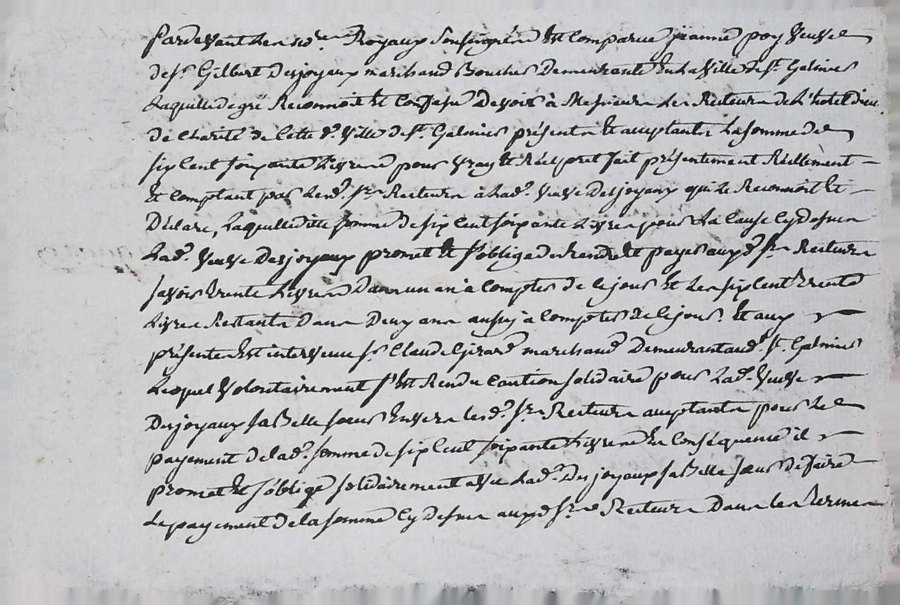 Pardevant Les no.res Royaux Soussignés Est Comparue jeanne poy veuve
de s.r Gilbert Desjoyaux marchand Boucher Demeurante En La Ville de s.t Galmier
Laquelle de gré Reconnoit Et Confesse Devoir à Messieurs Les Recteurs de L'hotel Dieu
de charité de Cette d.e Ville de s.t Galmier présents Et acceptants La somme de
six Cent soixante Livres pour vray Et Réel pret fait présentement Réellement
Et Comptant par Lesd. srs Recteurs à Lad.e veuve Desjoyaux qui Le Reconnoit Et
Déclare, Laquelle ditte somme de six Cent soixante Livres pour La Cause Cy Dessus
Lad.e veuve Desjoyaux promet Et s'oblige de rendre Et payer auxd. srs Recteurs
savoir trente Livres Dans un an à Compter de Ce jour Et Les six Cent trente
Livres Restants Dans Deux ans aussy à Compter de Ce jour. Et aux
présentes Est intervenu s.r Claude Girard marchand Demeurant aud. s.t Galmier
Lequel volontairement s'Est Rendu Caution solidaire pour Lad.e veuve
Desjoyaux sa Belle soeur Envers Lesd. srs Recteurs acceptants pour Le
payement de Lad.e somme de six Cent soixante Livres En Conséquence il
promet Et s'oblige solidairement avec Lad.e Desjoyaux sa Belle soeur de faire
Le payement de La somme Cy Dessus auxd. srs Recteurs Dans Les termes